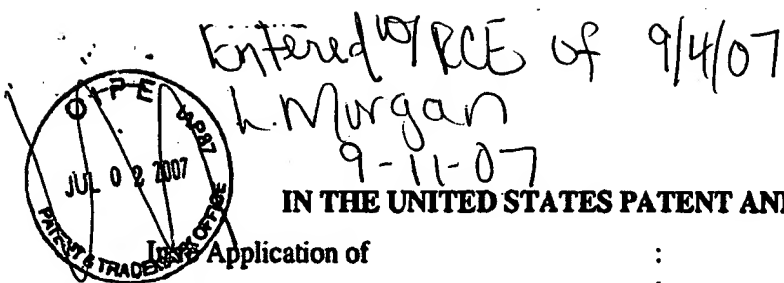 Entered w/ RCE of 9/4/07
L. Morgan
9-11-07
OIPE IAP87
JUL 02 2007
PATENT & TRADEMARK OFFICE
IN THE UNITED STATES PATENT AN
In re Application of :